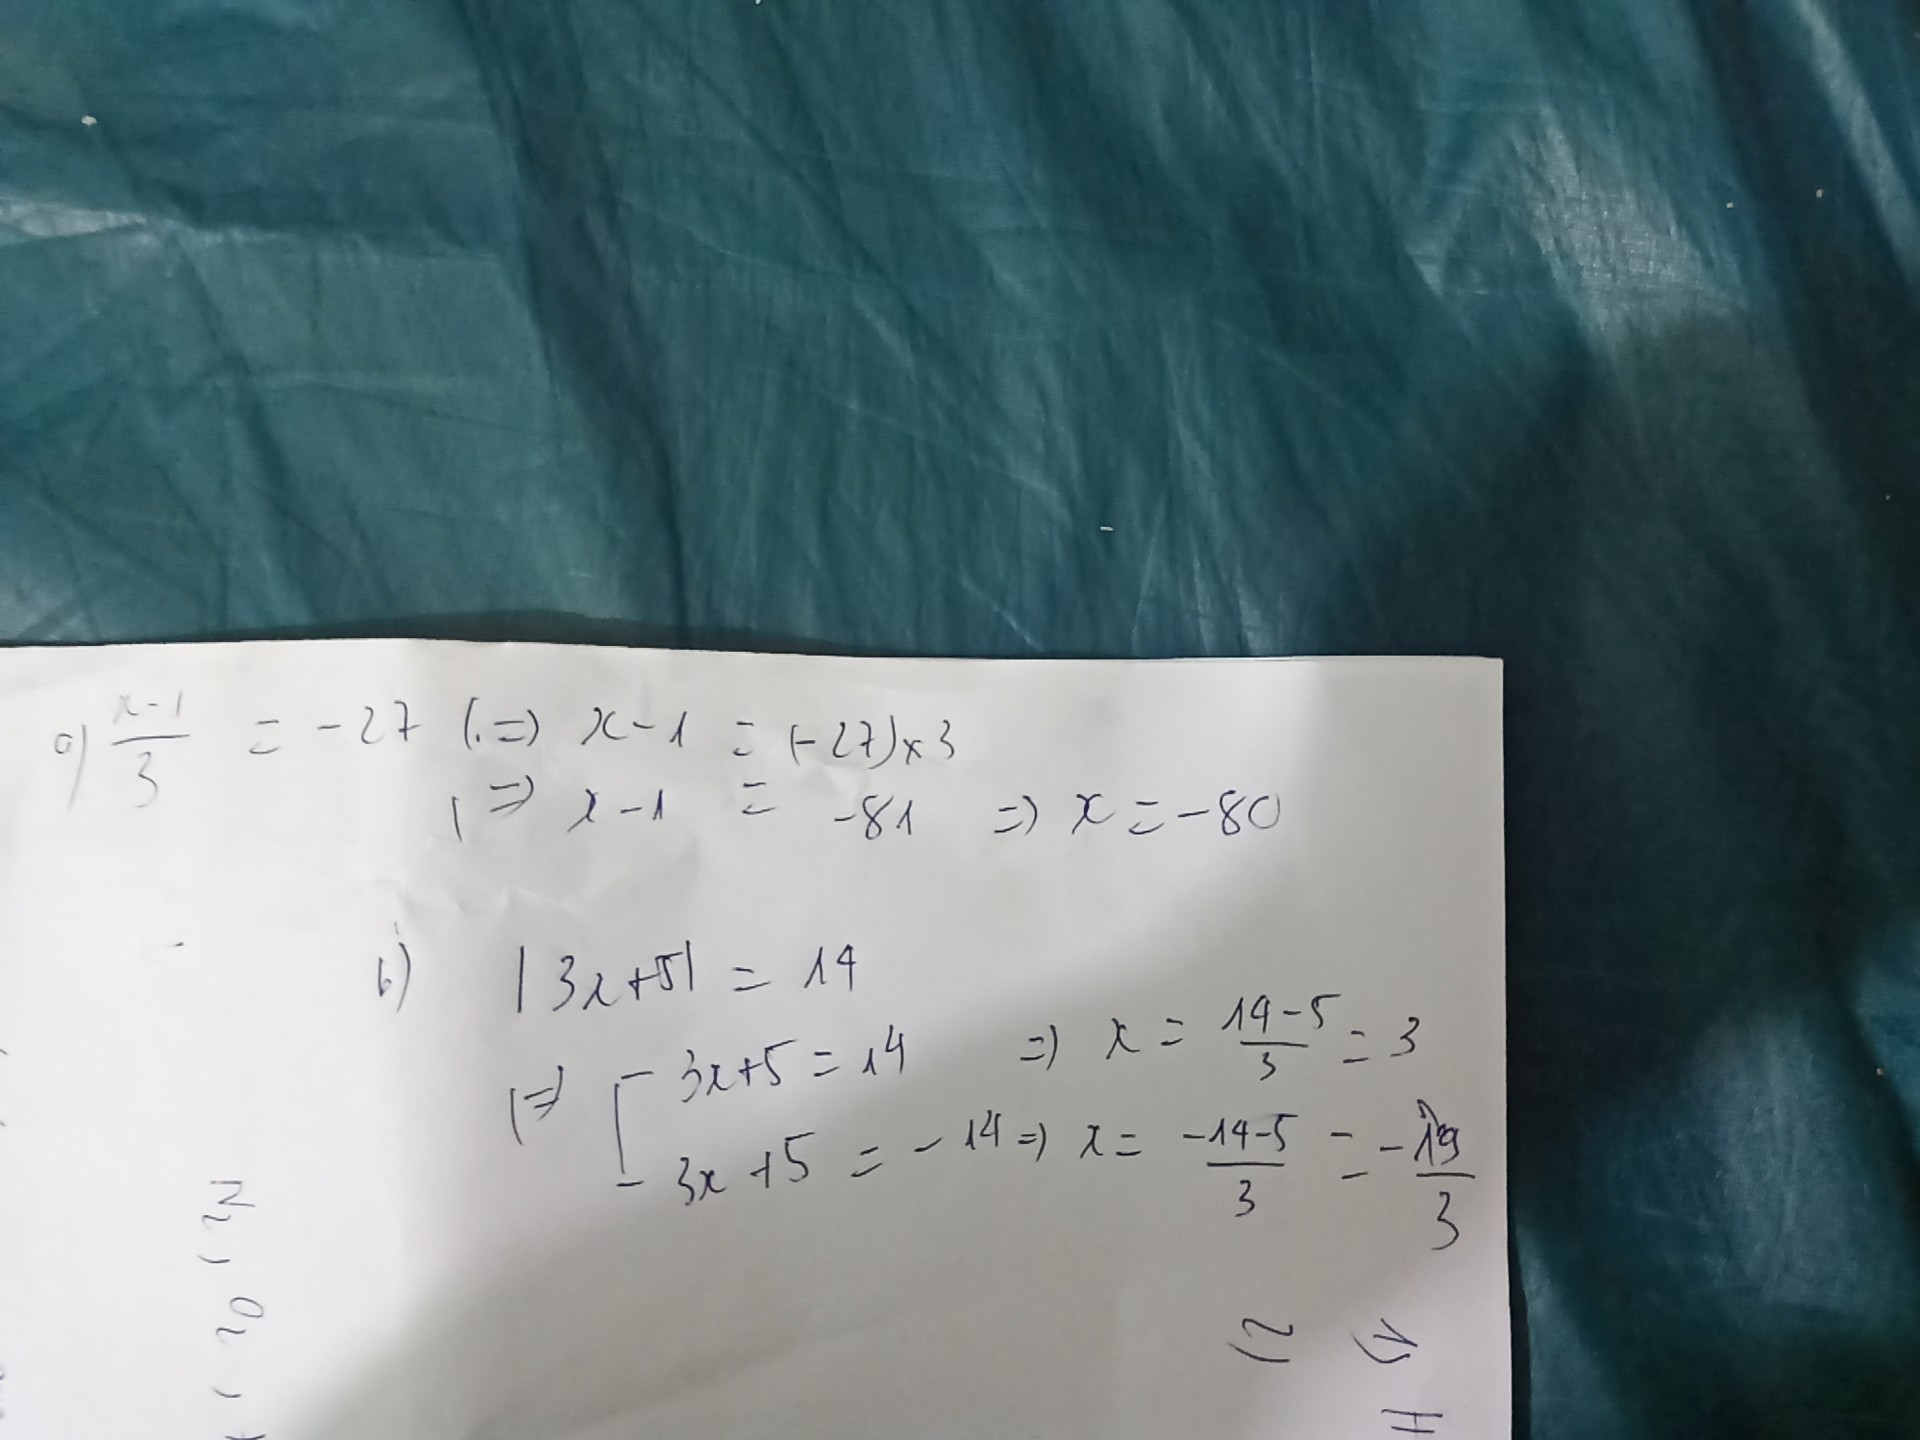 a) x-1/3 = -27 (=) x-1 = (-27)x3
(=) x-1 = -81 => x = -80
b) |3x+5| = 14
(=) [ 3x+5 = 14 => x = 14-5/3 = 3
3x+5 = -14 => x = -14-5/3 = -19/3